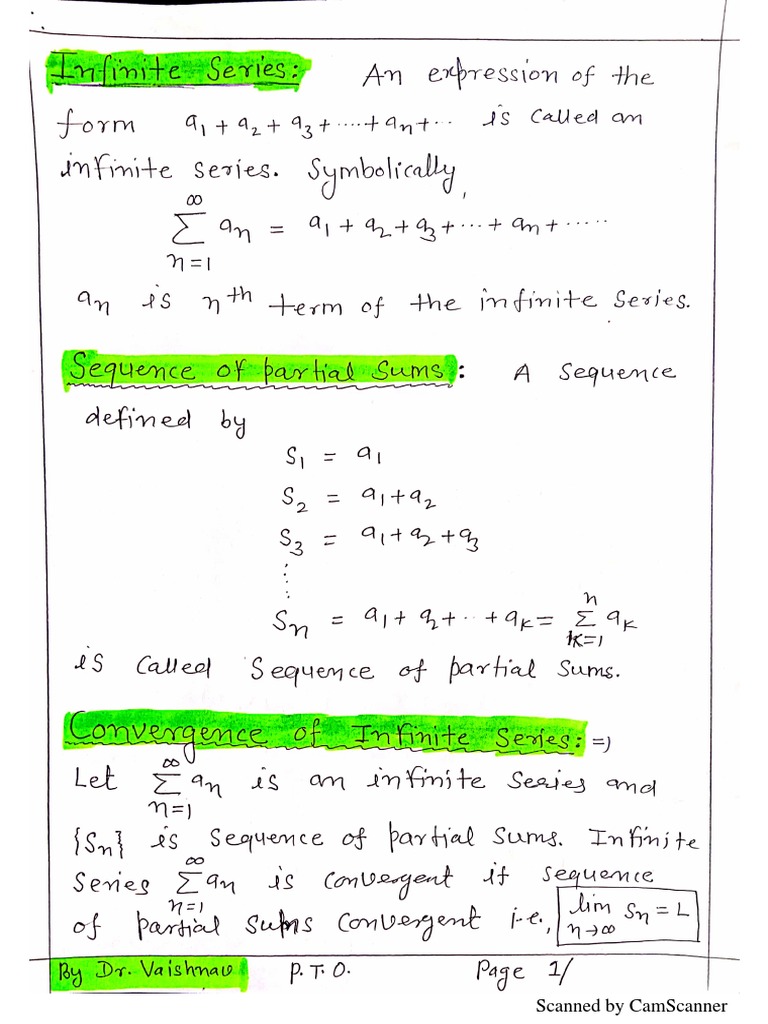 Infinite Series: An expression of the
form a₁ + a₂ + a₃ + ..... + aₙ + .. is called an
infinite series. Symbolically,
∞
Σ aₙ = a₁ + a₂ + a₃ + ... + aₙ + .....
n=1
aₙ is nᵗʰ term of the infinite series.
Sequence of partial sums: A sequence
defined by
S₁ = a₁
S₂ = a₁+a₂
S₃ = a₁+a₂+a₃
⋮
Sₙ = a₁ + a₂ + .. + aₖ = Σⁿₖ₌₁ aₖ
is called sequence of partial sums.
Convergence of Infinite Series: =)
Let Σ^∞ₙ₌₁ aₙ is an infinite series and
{Sₙ} is sequence of partial sums. Infinite
series Σ^∞ₙ₌₁ aₙ is convergent if sequence
of partial sums convergent i.e., lim n→∞ Sₙ = L
By Dr. Vaishnav P.T.O. Page 1/
Scanned by CamScanner